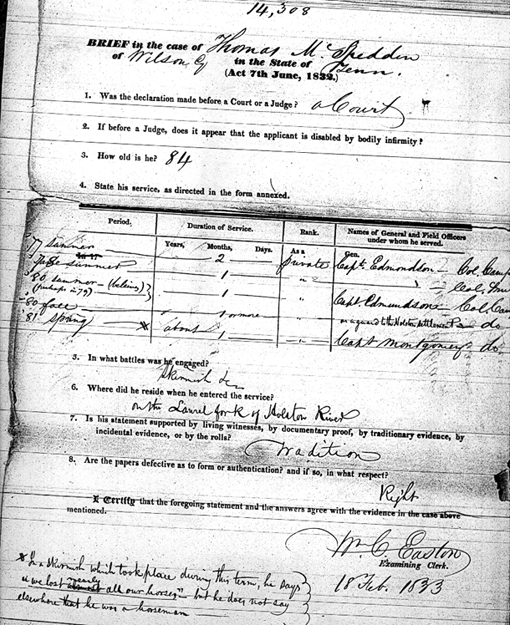 14,308
BRIEF in the case of Thomas McSpedden
of Wilson Cy in the State of Tenn.
(Act 7th June, 1832.)
1. Was the declaration made before a Court or a Judge? a Court
2. If before a Judge, does it appear that the applicant is disabled by bodily infirmity?
3. How old is he? 84
4. State his service, as directed in the form annexed.
Period. Duration of Service. Rank. Names of General and Field Officers
under whom he served.
Years, Months, Days. As a Gen.
'77 summer 2 private Capt. Edmondson — Col. Camp
summer — 1 — " " Col.
'80 summer — (believes) — 1 — " Capt. Edmundson — Col. Cam
(perhaps in 79)
'80 fall 1 or more " do
'81 spring * about 1 — Capt Montgomery do
5. In what battles was he engaged?
Skirmish
6. Where did he reside when he entered the service?
on the Laurel fork of Holston River
7. Is his statement supported by living witnesses, by documentary proof, by traditionary evidence, by
incidental evidence, or by the rolls?
Tradition
8. Are the papers defective as to form or authentication? and if so, in what respect?
Right
I Certify that the foregoing statement and the answers agree with the evidence in the case above
mentioned.
Wm C. Easton
Examining Clerk.
18 Feb. 1833
* In a skirmish which took place during this term, he says
"we lost nearly all our horses" but he does not say
elsewhere that he was a horseman